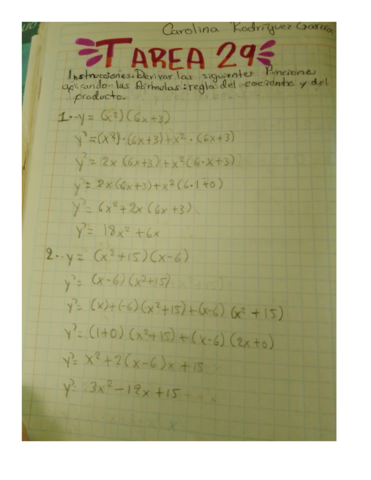 Carolina Rodríguez García
TAREA 29
Instrucciones: Derivar las siguientes funciones
aplicando las fórmulas: regla del cociente y del
producto.
1.- y = (x²) (6x+3)
y' = (x²)·(6x+3)+x²·(6x+3)
y' = 2x (6x+3)+x²(6·x+3)
y' = 2x(6x+3)+x²(6·1+0)
y' = 6x²+2x(6x+3)
y' = 18x²+6x
2.- y = (x²+15)(x-6)
y' = (x-6)(x²+15)
y' = (x)+(-6)(x²+15)+(x-6)(x²+15)
y' = (1+0)(x²+15)+(x-6)(2x+0)
y' = x²+2(x-6)x+15
y' = 3x²-12x+15